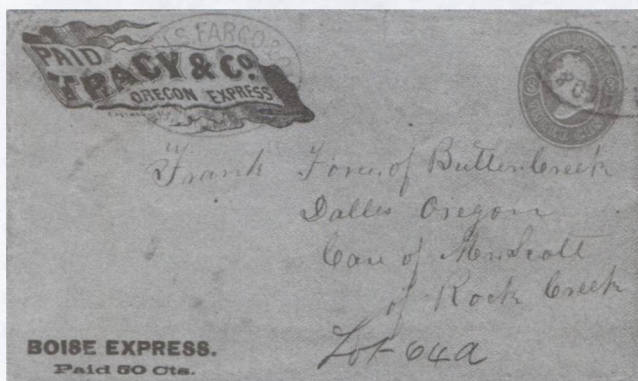 PAID
TRACY & CO.
OREGON EXPRESS
LS FARGO & CO
Frank Jones of Butter Creek
Dalles Oregon
Care of Mr Scott
of Rock Creek
Lot 64a
BOISE EXPRESS.
Paid 50 Cts.